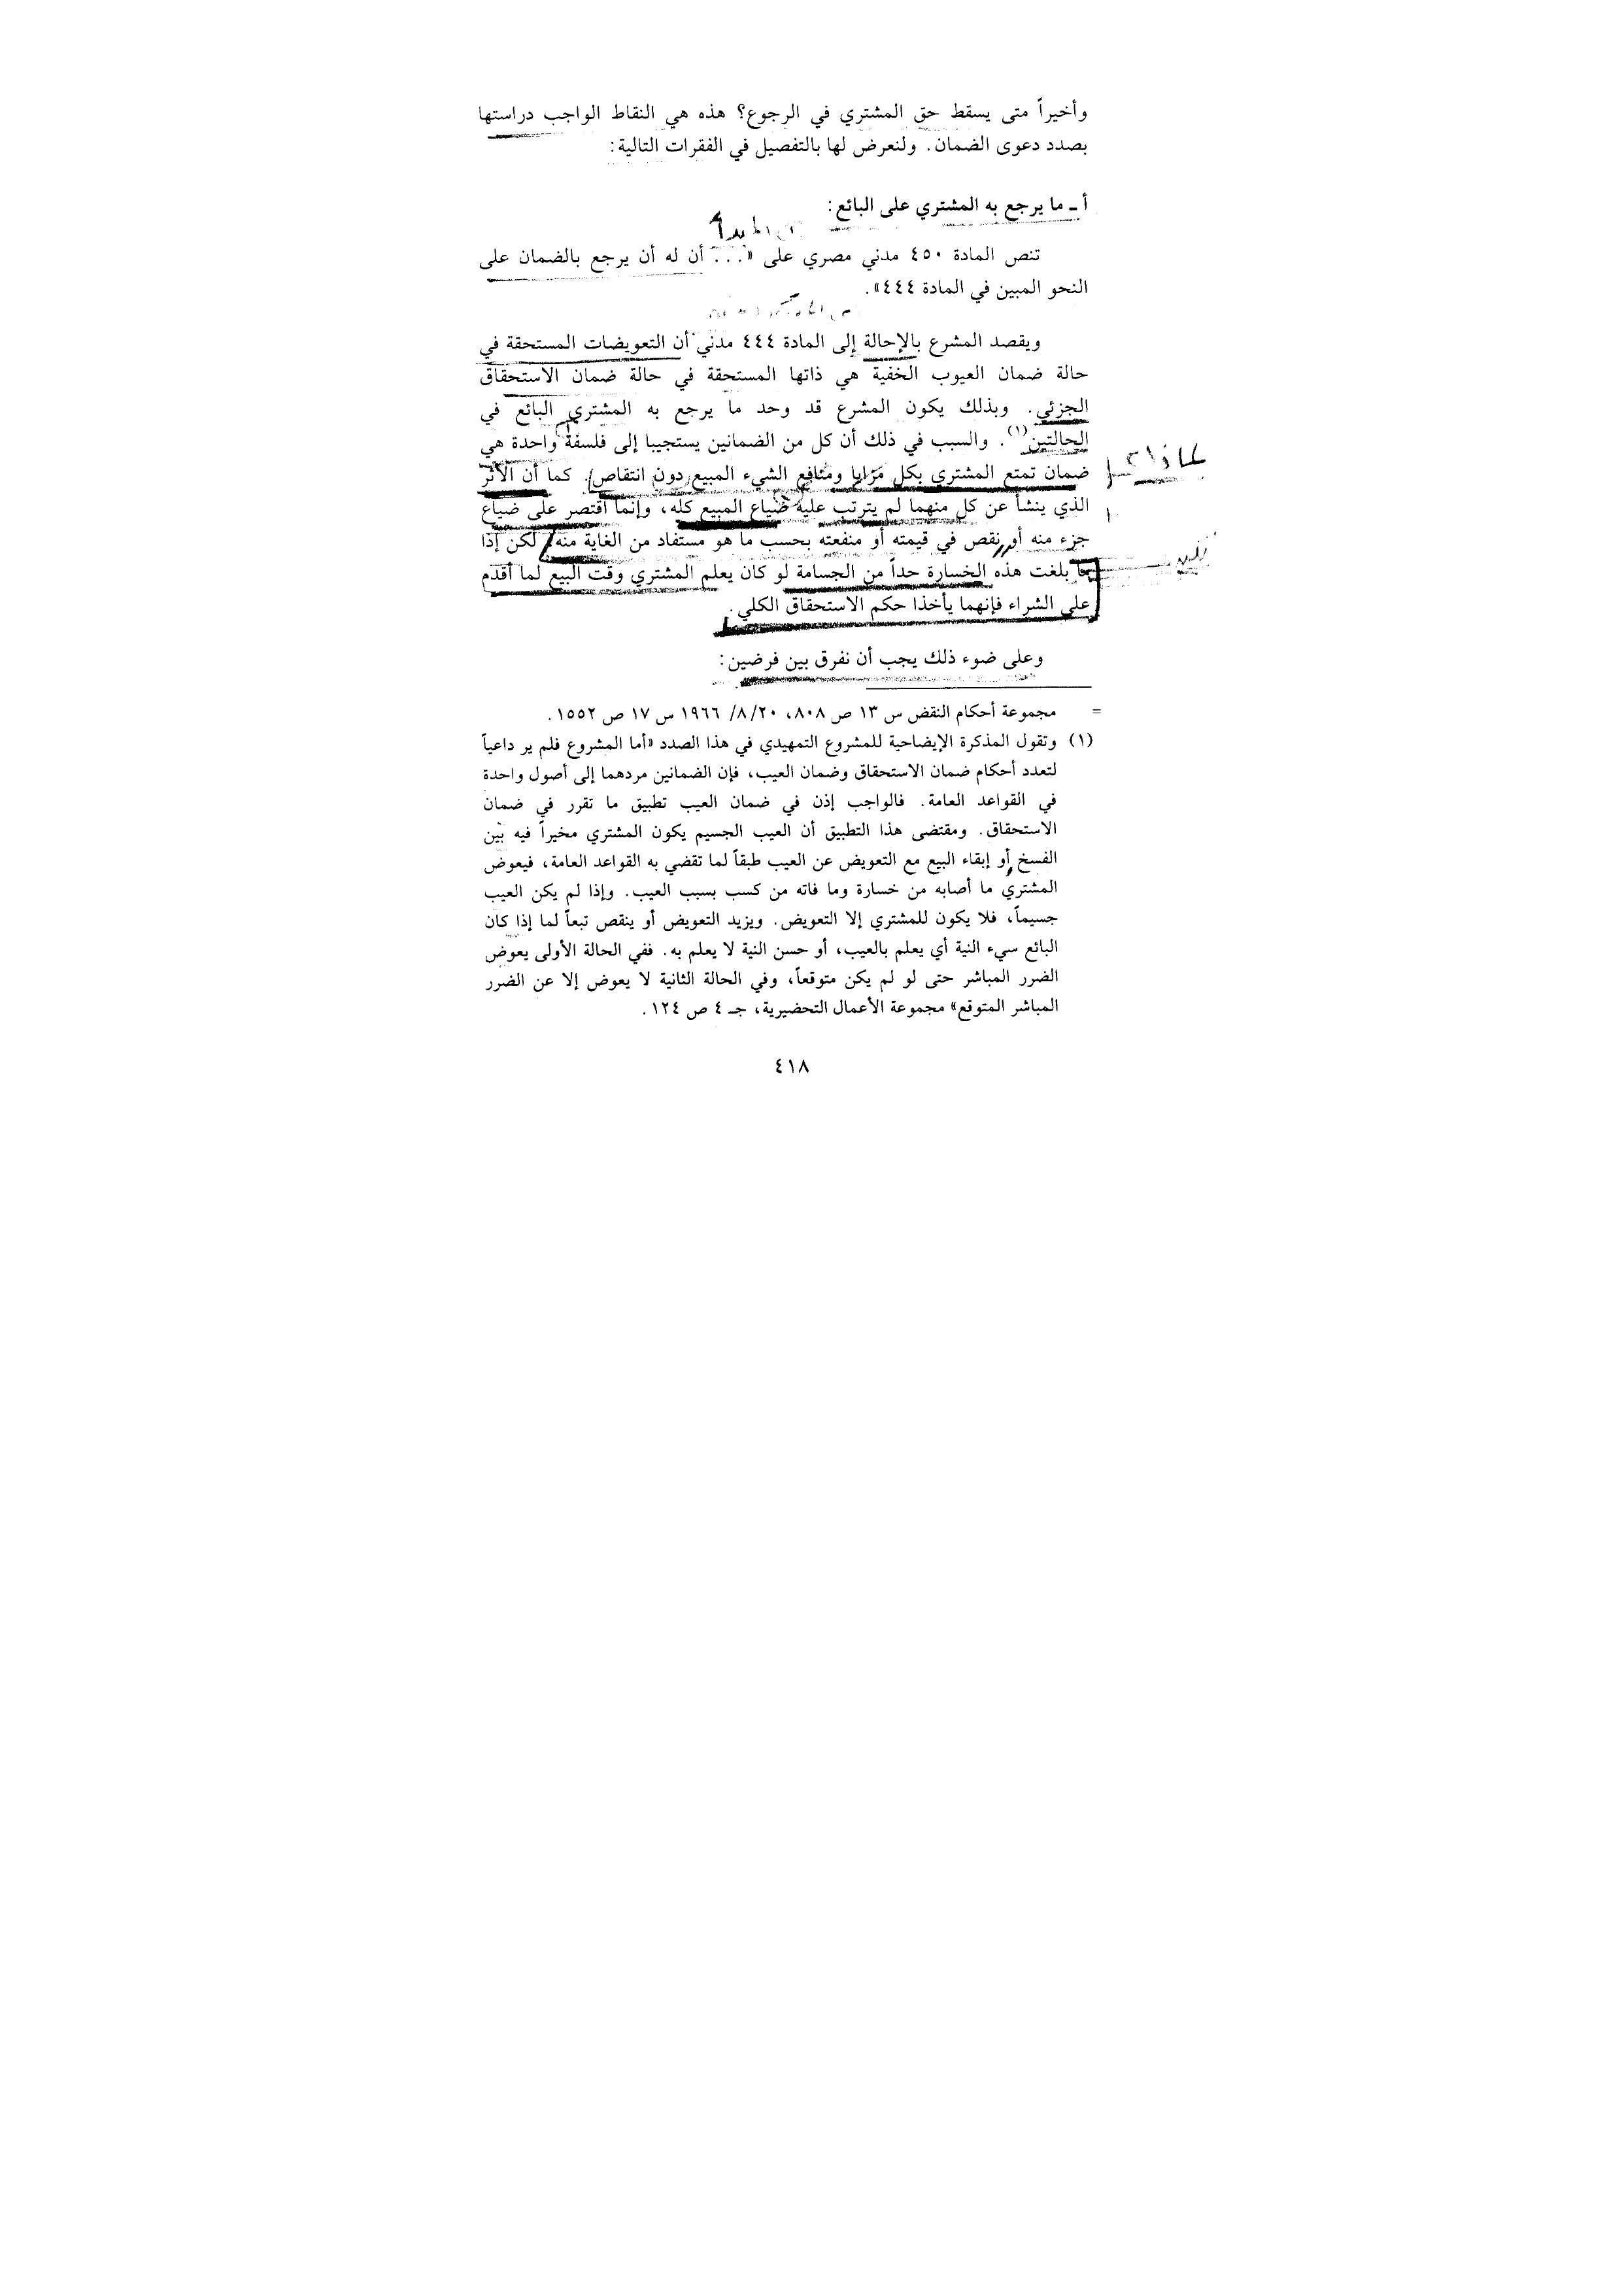 وأخيراً متى يسقط حق المشتري في الرجوع؟ هذه هي النقاط الواجب دراستها
بصدد دعوى الضمان. ولنعرض لها بالتفصيل في الفقرات التالية:
أ ـ ما يرجع به المشتري على البائع:
تنص المادة ٤٥٠ مدني مصري على «... أن له أن يرجع بالضمان على
النحو المبين في المادة ٤٤٤».
ويقصد المشرع بالإحالة إلى المادة ٤٤٤ مدني أن التعويضات المستحقة في
حالة ضمان العيوب الخفية هي ذاتها المستحقة في حالة ضمان الاستحقاق
الجزئي. وبذلك يكون المشرع قد وحد ما يرجع به المشتري البائع في
الحالتين(١). والسبب في ذلك أن كل من الضمانين يستجيبا إلى فلسفة واحدة هي
لماذا؟
ضمان تمتع المشتري بكل مزايا ومنافع الشيء المبيع دون انتقاص. كما أن الأثر
الذي ينشأ عن كل منهما لم يترتب عليه ضياع المبيع كله، وإنما اقتصر على ضياع
جزء منه أو نقص في قيمته أو منفعته بحسب ما هو مستفاد من الغاية منه. لكن إذا
ما بلغت هذه الخسارة حداً من الجسامة لو كان يعلم المشتري وقت البيع لما أقدم
على الشراء فإنهما يأخذا حكم الاستحقاق الكلي.
وعلى ضوء ذلك يجب أن نفرق بين فرضين:
= مجموعة أحكام النقض س ١٣ ص ٨٠٨، ٨/٢٠/ ١٩٦٦ س ١٧ ص ١٥٥٢.
(١) وتقول المذكرة الإيضاحية للمشروع التمهيدي في هذا الصدد «أما المشروع فلم ير داعياً
لتعدد أحكام ضمان الاستحقاق وضمان العيب، فإن الضمانين مردهما إلى أصول واحدة
في القواعد العامة. فالواجب إذن في ضمان العيب تطبيق ما تقرر في ضمان
الاستحقاق. ومقتضى هذا التطبيق أن العيب الجسيم يكون المشتري مخيراً فيه بين
الفسخ أو إبقاء البيع مع التعويض عن العيب طبقاً لما تقضي به القواعد العامة، فيعوض
المشتري ما أصابه من خسارة وما فاته من كسب بسبب العيب. وإذا لم يكن العيب
جسيماً، فلا يكون للمشتري إلا التعويض. ويزيد التعويض أو ينقص تبعاً لما إذا كان
البائع سيء النية أي يعلم بالعيب، أو حسن النية لا يعلم به. ففي الحالة الأولى يعوض
الضرر المباشر حتى لو لم يكن متوقعاً، وفي الحالة الثانية لا يعوض إلا عن الضرر
المباشر المتوقع» مجموعة الأعمال التحضيرية، جـ ٤ ص ١٢٤.
٤١٨